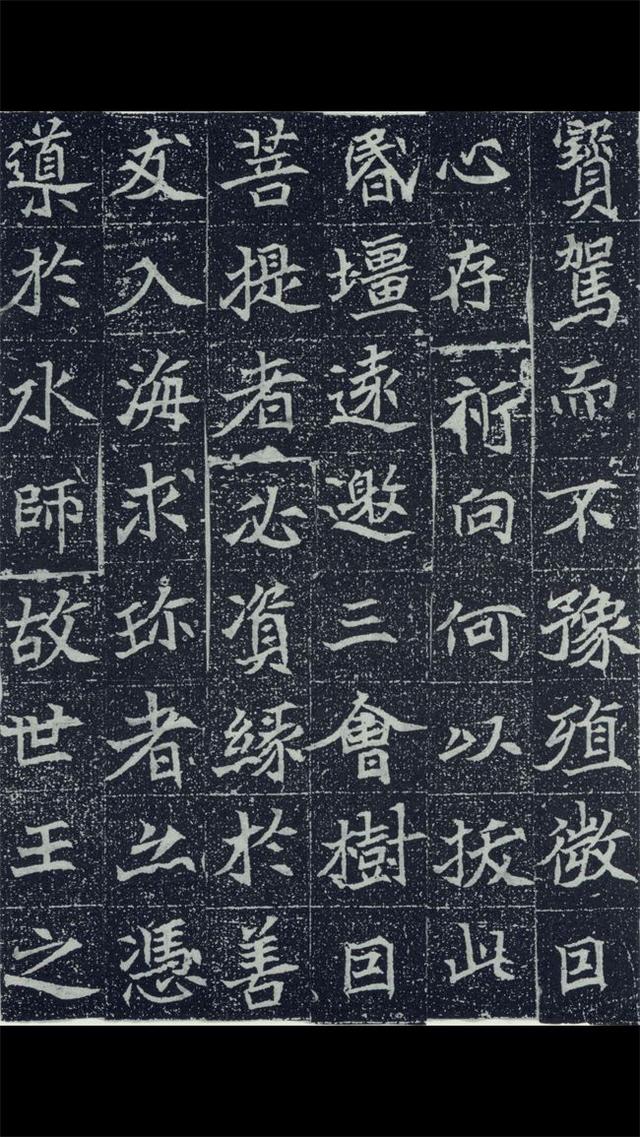 寶駕而不豫殖微因
心存祈向何以拔此
昬壃遠邀三會樹因
菩提者必資緣於善
友入海求珎者亦憑
導於水師故世王之